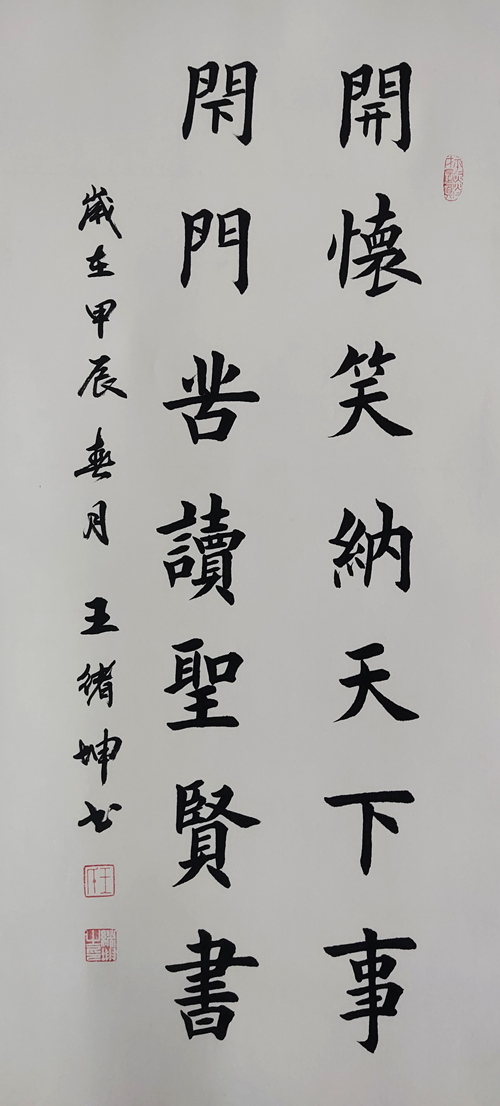 開懷笑納天下事
閇門苦讀聖賢書
歲在甲辰春月 王緒坤书